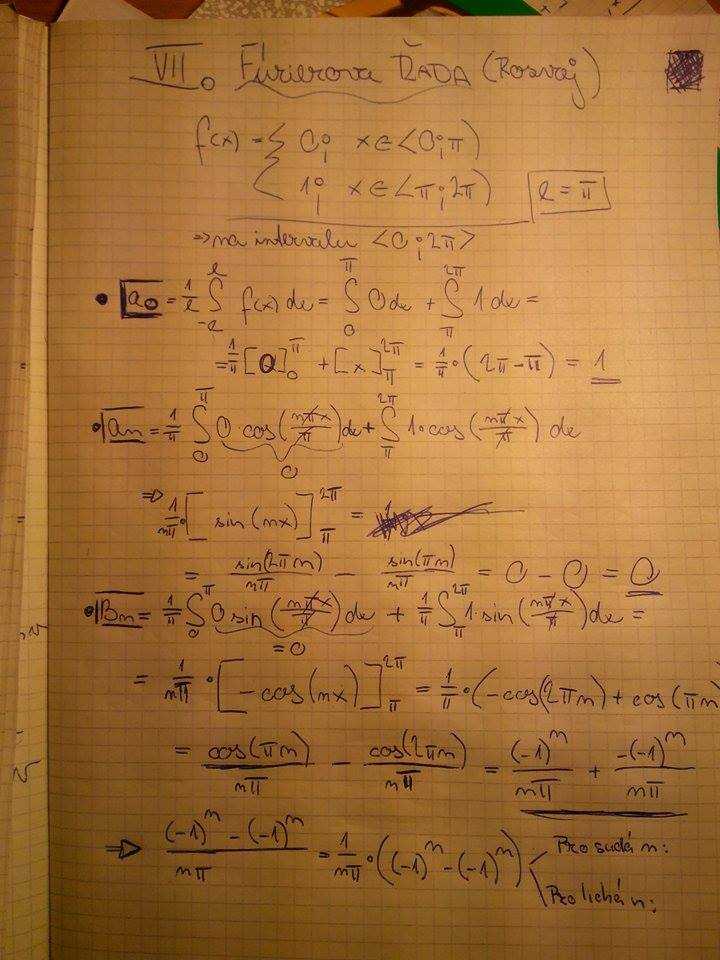 VII. Fúrierova ŘADA (Rosvoj)
f(x) = { 0; x ∈ <0; π)
1; x ∈ <π; 2π) l = π
⇒ na intervalu <0; 2π>
• a₀ = 1/l ∫_{-l}^{l} f(x) dx = ∫_0^π 0 dx + ∫_π^{2π} 1 dx =
= 1/π [0]_0^π + [x]_π^{2π} = 1/π · (2π - π) = 1
• an = 1/π ∫_0^π 0 cos(nπx/π) dx + ∫_π^{2π} 1 · cos(nπx/π) dx
0
⇒ 1/nπ · [sin(nx)]_π^{2π} =
= sin(2πn)/nπ - sin(πn)/nπ = 0 - 0 = 0
• Bn = 1/π ∫_0^π 0 sin(nπx/π) dx + 1/π ∫_π^{2π} 1 · sin(nπx/π) dx =
= 0
= 1/nπ · [-cos(nx)]_π^{2π} = 1/π · (-cos(2πn) + cos(πn)
= cos(πn)/nπ - cos(2πn)/nπ = (-1)^n/nπ + -(-1)^n/nπ
⇒ (-1)^n - (-1)^n/nπ = 1/nπ · ((-1)^n - (-1)^n) Pro sudá n:
Pro lichá n: